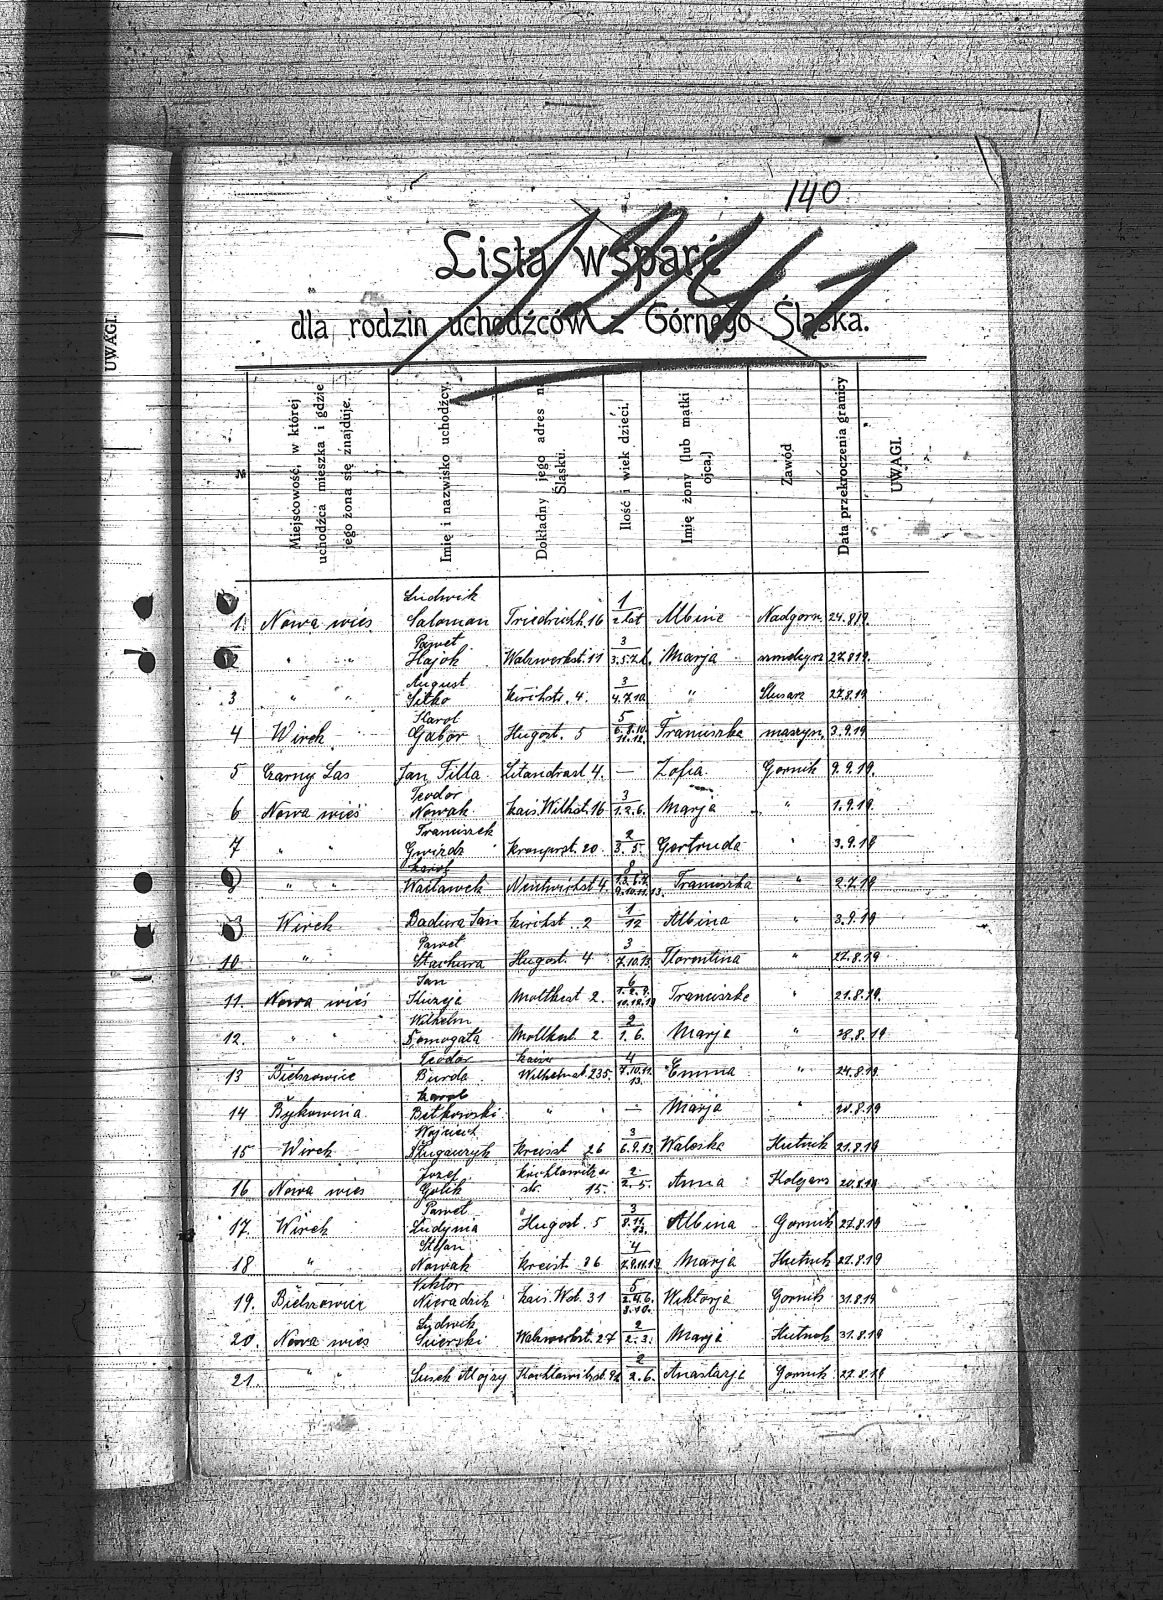 140
1241
Lista wsparć
dla rodzin uchodźców z Górnego Śląska.
UWAGI.
№
Miejscowość, w której
uchodźca mieszka i gdzie
jego żona się znajduje.
Imię i nazwisko uchodźcy.
Dokładny jego adres na
Śląsku.
Ilość i wiek dzieci.
Imię żony (lub matki
ojca.)
Zawód
Data przekroczenia granicy
UWAGI.
Ludwik 1
1. Nowa wieś Salomon Friedrichst. 16 2 lat Albine Nadgorn. 24.8.19.
Paweł 3
" " Hajok Walzwerkst. 11 3.5.7 l. Marja 27.8.19.
August 3
3 " " Sitko Kirchstr. 4. 4.7.10. " Slusarz 27.8.19
Karol 5
4 Wirek Gabor Hugost. 5 6.8.10. Franciszka maszyn. 3.9.19
11.12.
5 Czarny Las Jan Filla 4. — Zofia Gornik 9.9.19.
Teodor 3
6 Nowa wieś Nowak Kais. Wilhst. 16 1.2.6. Marja " 1.9.19.
Franciszek 2
7 " " Gwizdz Kronprst. 20. 3.5. Gertruda " 3.9.19
Karol 8
" " Wacławek 4. Franciszka " 2.7.19
9.10.11.13.
1
Wirek Badura Jan Kirchst. 2 12 Albina " 3.9.19
Paweł 3
10 " Stachura Hugost. 4 7.10.13. Florentina " 22.8.19
Jan 6
11. Nowa wieś Moltkest 2. Franciszke " 21.8.19.
Wilhelm 2
12. " " Pomogała Moltkest. 2 1. 6. Marje " 28.8.19
Teodor Kaiser 4
13 Bielszowice Burda Wilhelmst. 235. 7.10.11. Emma " 24.8.19.
13.
Karol
14 Bykowina Bitkowski " " — Marja " 20.8.19
Wojciech 3
15 Wirek Długaczyk Kreisst 26 6.9.13. Waleska Hutnik 21.8.19
Jozef Kochlowitzer 2
16 Nowa wies Golik str. 15. 2. 5. Anna Kolejarz 20.8.19
Paweł 3
17. Wirek Ludynia Hugost. 5 8.11. Albina Gornik 27.8.19
13.
Stefan 4
18 " Nowak Kreist. 36 7.9.11.13 Marja Hutnik 22.8.19
Wiktor 5
19. Bielszowice Nieradzik Kais. Wil. 31 2.4.6. Wiktorja Gornik 31.8.19
8.10.
Ludwik 2
20. Nowa wies Walzwerkst. 27 2. 3. Marja Hutnik 31.8.19
2
21. " " Susek Alojzy 2. 6. Anastazje Gornik 27.8.19